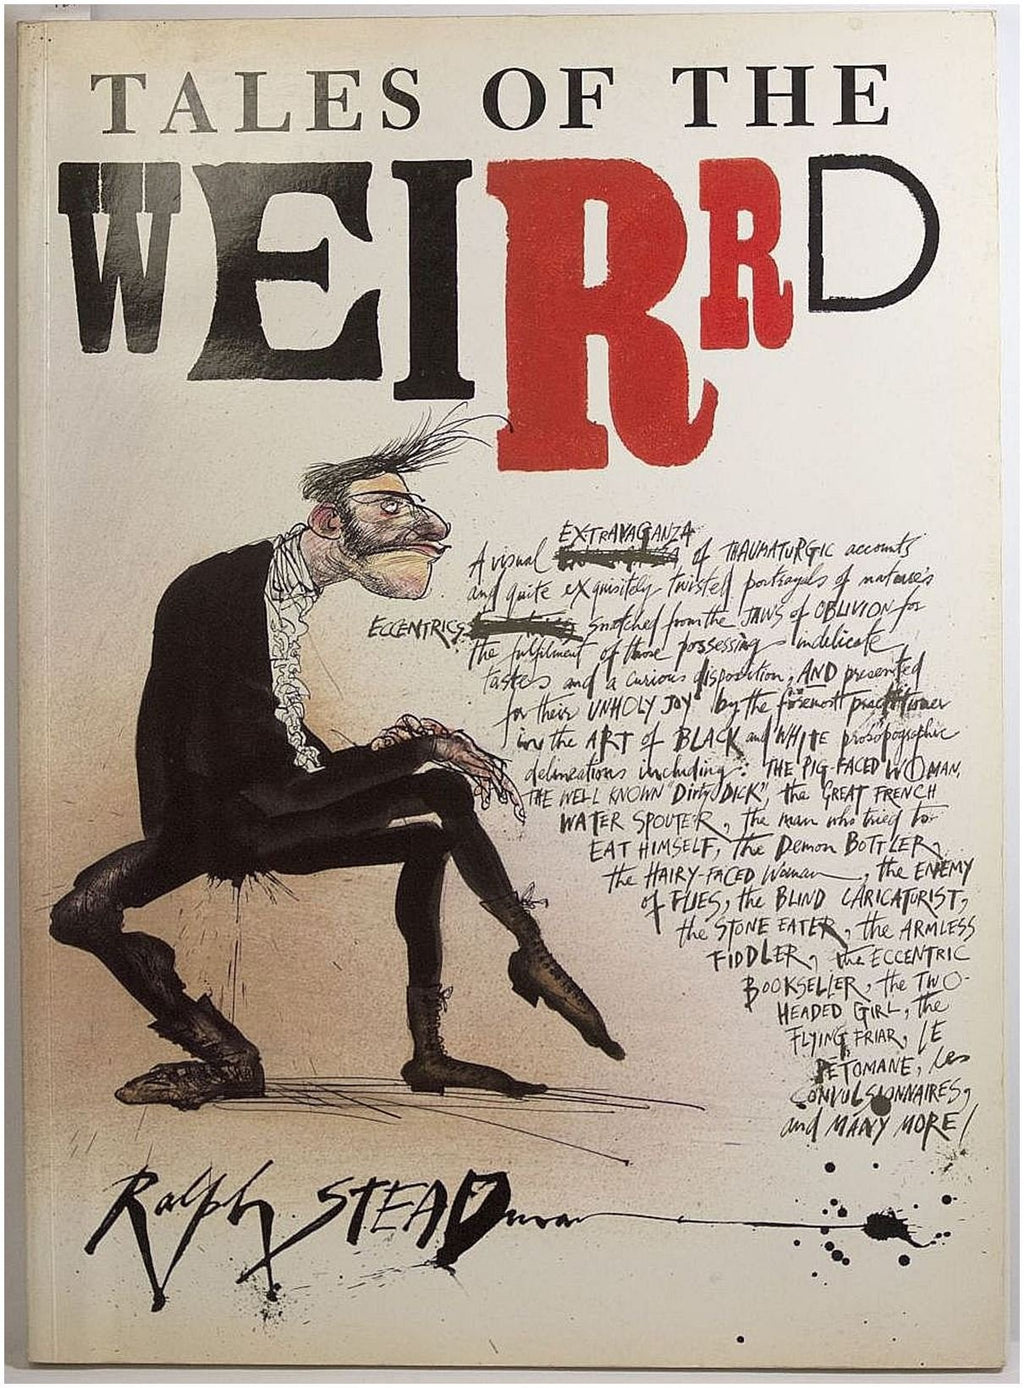 TALES OF THE
WEIRRD
EXTRAVAGANZA
A visual of THAUMATURGIC accounts
and quite exquisitely twisted portrayals of nature's
ECCENTRICS snatched from the JAWS of OBLIVION for
the fulfilment of those possessing indelicate
tastes and a curious disposition, AND presented
for their UNHOLY JOY by the foremost practitioner
in the ART of BLACK and WHITE prosopographic
delineations including: THE PIG-FACED WOMAN,
THE WELL KNOWN "Dirty DICK", the GREAT FRENCH
WATER SPOUTER, the man who tried to
EAT HIMSELF, the Demon BOTTLER,
the HAIRY-FACED Woman, the ENEMY
of FLIES, the BLIND CARICATURIST,
the STONE EATER, the ARMLESS
FIDDLER, the ECCENTRIC
BOOKSELLER, the TWO-
HEADED GIRL, the
FLYING FRIAR, LE
PETOMANE, les
CONVULSIONNAIRES,
and MANY MORE!
Ralph STEADman